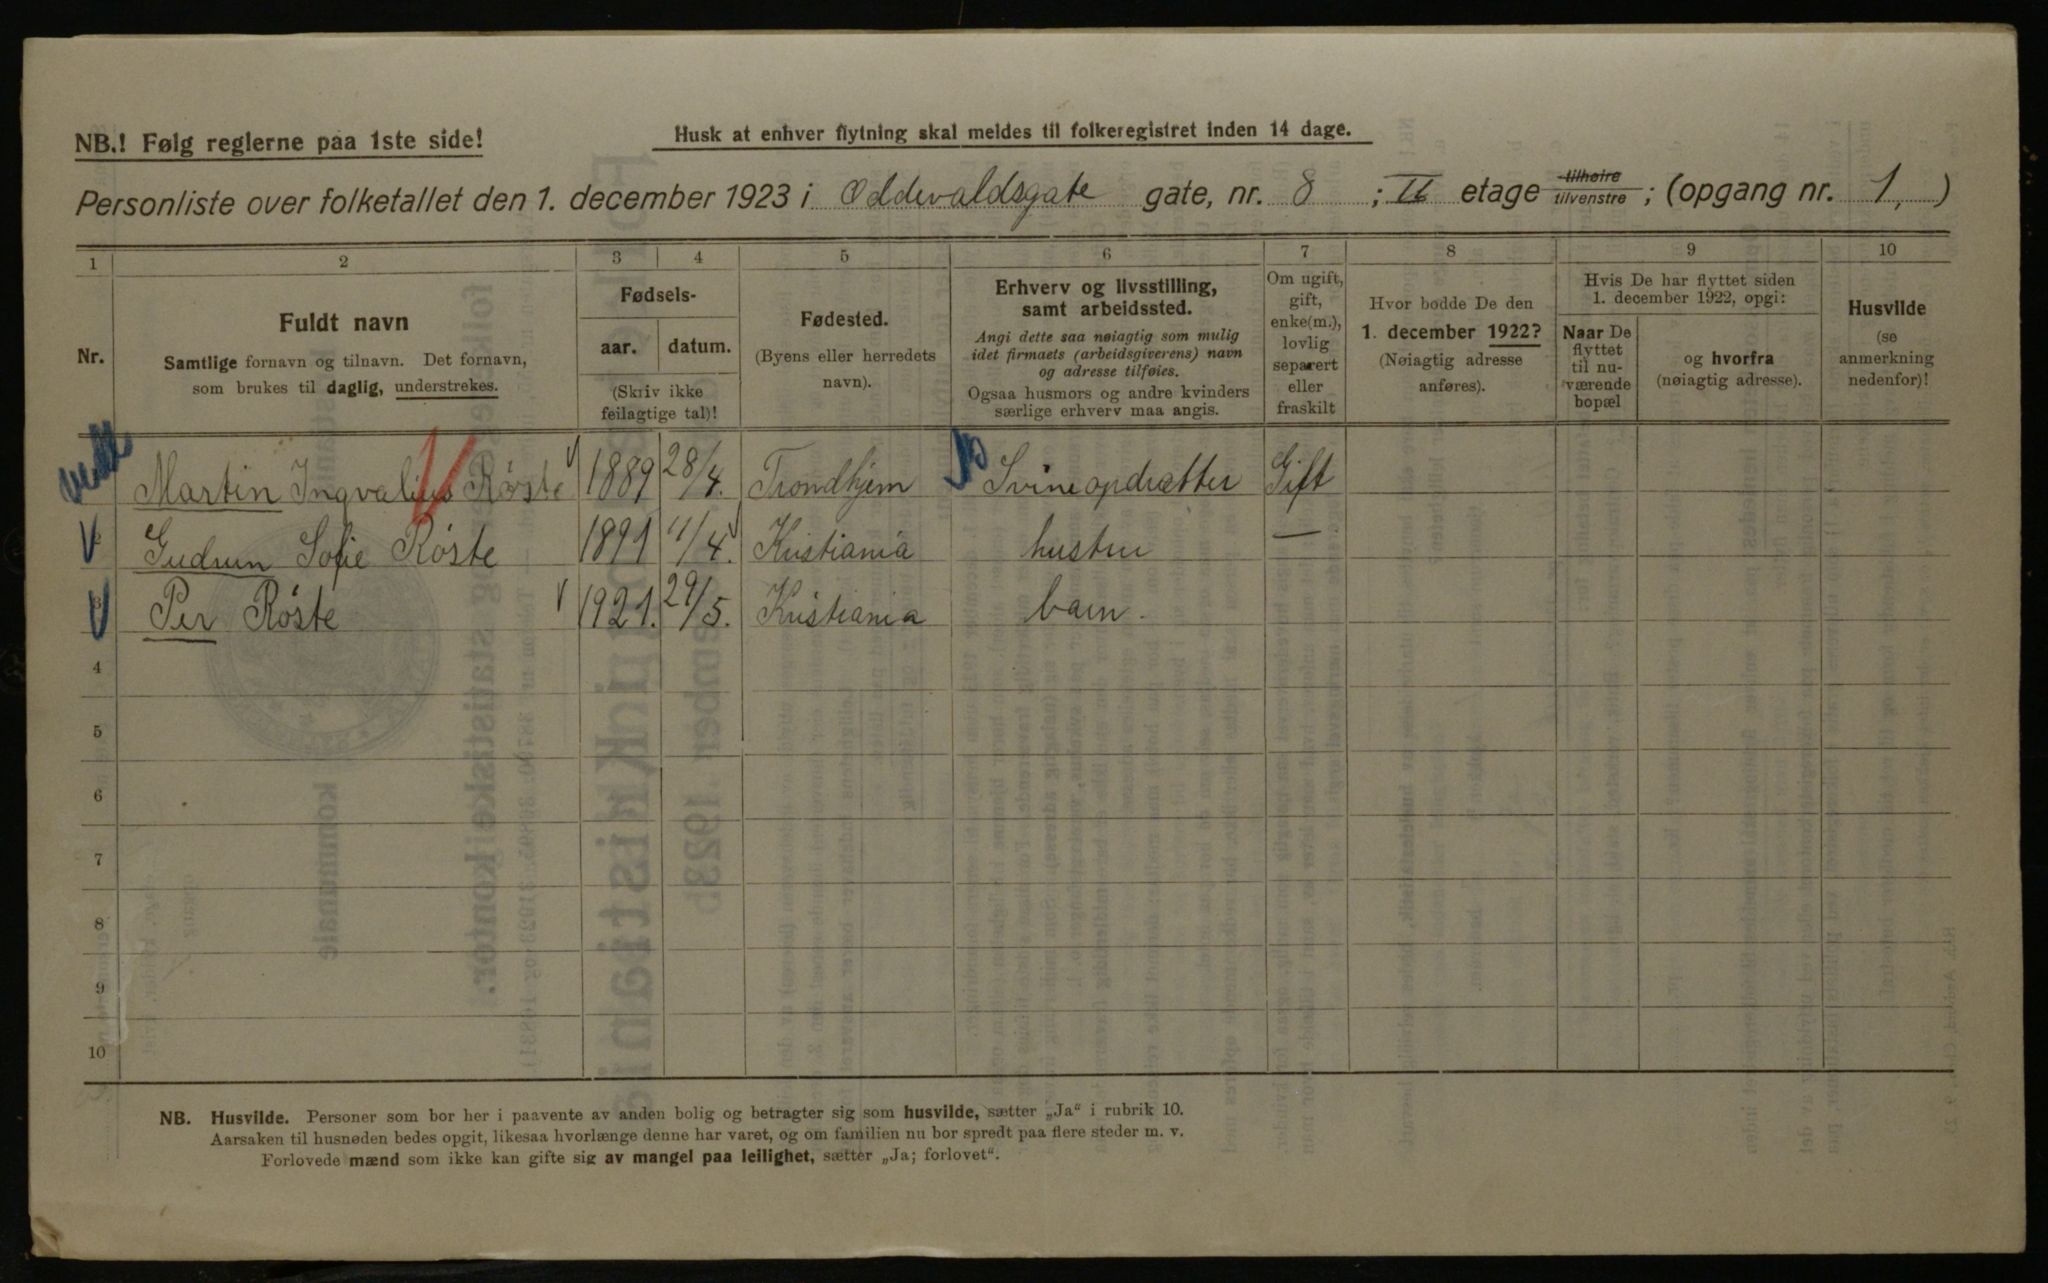 NB.! Følg reglerne paa 1ste side!
Husk at enhver flytning skal meldes til folkeregistret inden 14 dage.
Personliste over folketallet den 1. december 1923 i Oddevaldsgate gate, nr. 8 ; II etage tilhøire tilvenstre ; (opgang nr. 1, )
1 2 3 4 5 6 7 8 9 10
Nr.
Fuldt navn
Samtlige fornavn og tilnavn. Det fornavn,
som brukes til daglig, understrekes.
Fødsels-
aar. datum.
(Skriv ikke
feilagtige tal)!
Fødested.
(Byens eller herredets
navn).
Erhverv og livsstilling,
samt arbeidssted.
Angi dette saa nøiagtig som mulig
idet firmaets (arbeidsgiverens) navn
og adresse tilføies.
Ogsaa husmors og andre kvinders
særlige erhverv maa angis.
Om ugift,
gift,
enke(m.),
lovlig
separert
eller
fraskilt
Hvor bodde De den
1. december 1922?
(Nøiagtig adresse
anføres).
Hvis De har flyttet siden
1. december 1922, opgi:
Naar De
flyttet
til nu-
værende
bopæl
og hvorfra
(nøiagtig adresse).
Husvilde
(se
anmerkning
nedenfor)!
Martin Ingvalius Røste 1889 28/4. Trondhjem Svineopdrætter Gift
2 Gudrun Sofie Røste 1891 11/4. Kristiania hustru —
3 Per Røste 1921. 29/5. Kristiania barn.
4
5
6
7
8
9
10
NB. Husvilde. Personer som bor her i paavente av anden bolig og betragter sig som husvilde, sætter „Ja“ i rubrik 10.
Aarsaken til husnøden bedes opgit, likesaa hvorlænge denne har varet, og om familien nu bor spredt paa flere steder m. v.
Forlovede mænd som ikke kan gifte sig av mangel paa leilighet, sætter „Ja; forlovet“.